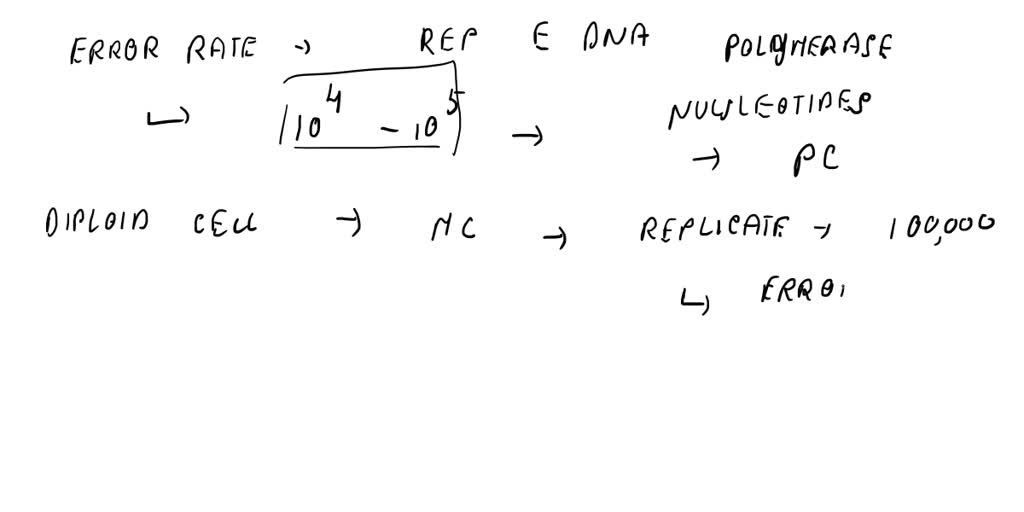 ERROR RATE → REP E DNA POLYMERASE
↳ 10^4 - 10^5 → NUCLEOTIDES
→ PC
DIPLOID CELL → NC → REPLICATE → 100,000
↳ ERROR